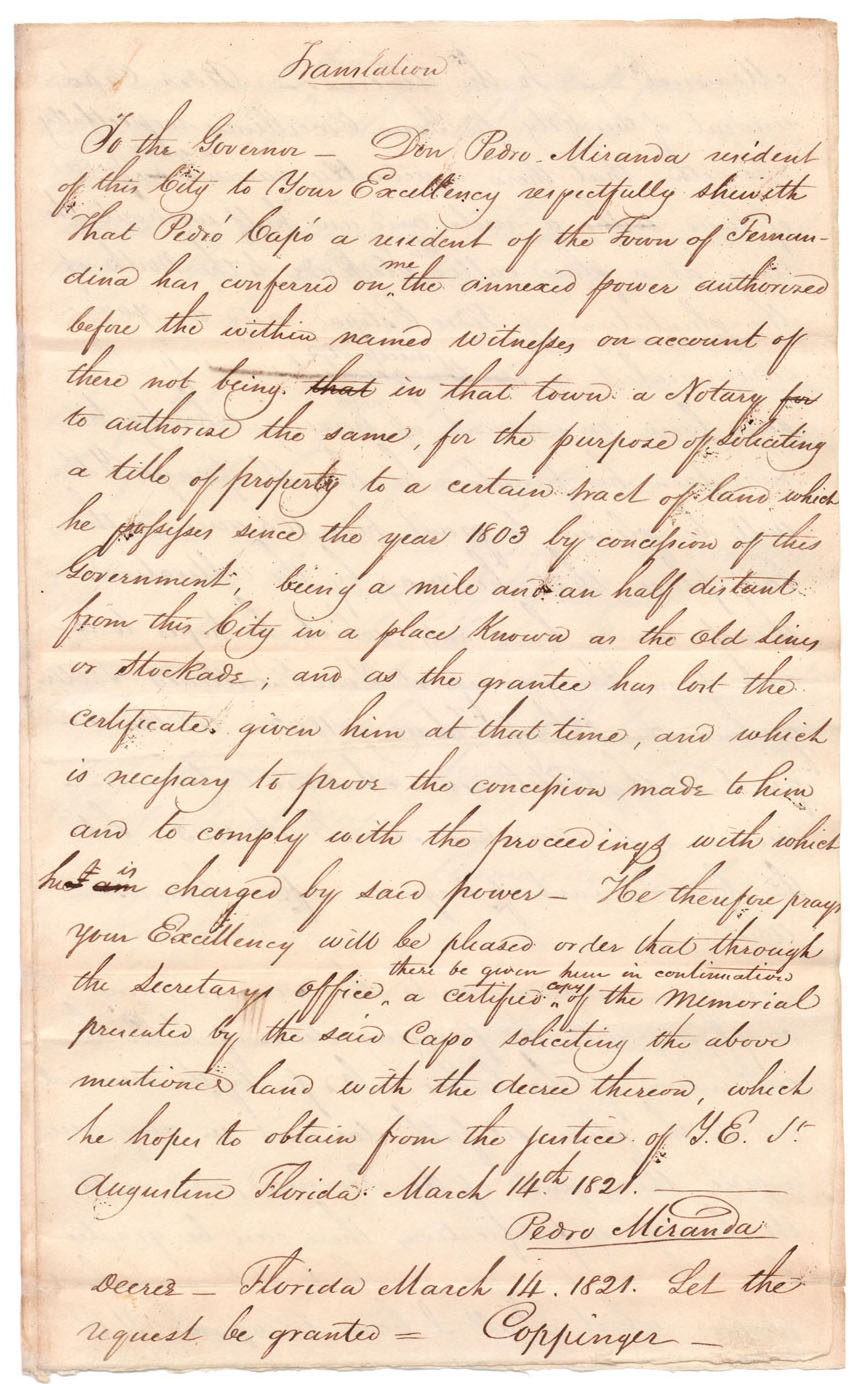 Translation
To the Governor — Don Pedro Miranda resident
of this City to Your Excellency respectfully sheweth
That Pedro Capó a resident of the Town of Fernan-
dina has conferred on me the annexed power authorized
before the within named witnesses on account of
there not being that in that town a Notary for
to authorise the same, for the purpose of soliciting
a title of property to a certain tract of land which
he possesses since the year 1803 by concession of this
Government, being a mile and an half distant
from this City in a place Known as the Old Lines
or Stockade; and as the grantee has lost the
certificate given him at that time, and which
is necessary to prove the concession made to him
and to comply with the proceedings with which
he I am is charged by said power — He therefore prays
your Excellency will be pleased order that through
the Secretarys Office there be given him in continuation a certified copy of the Memorial
presented by the said Capo soliciting the above
mentioned land with the decree thereon, which
he hopes to obtain from the justice of Y.E. St
Augustine Florida March 14th 1821. —
Pedro Miranda
Decree — Florida March 14. 1821. Let the
request be granted = Coppinger —